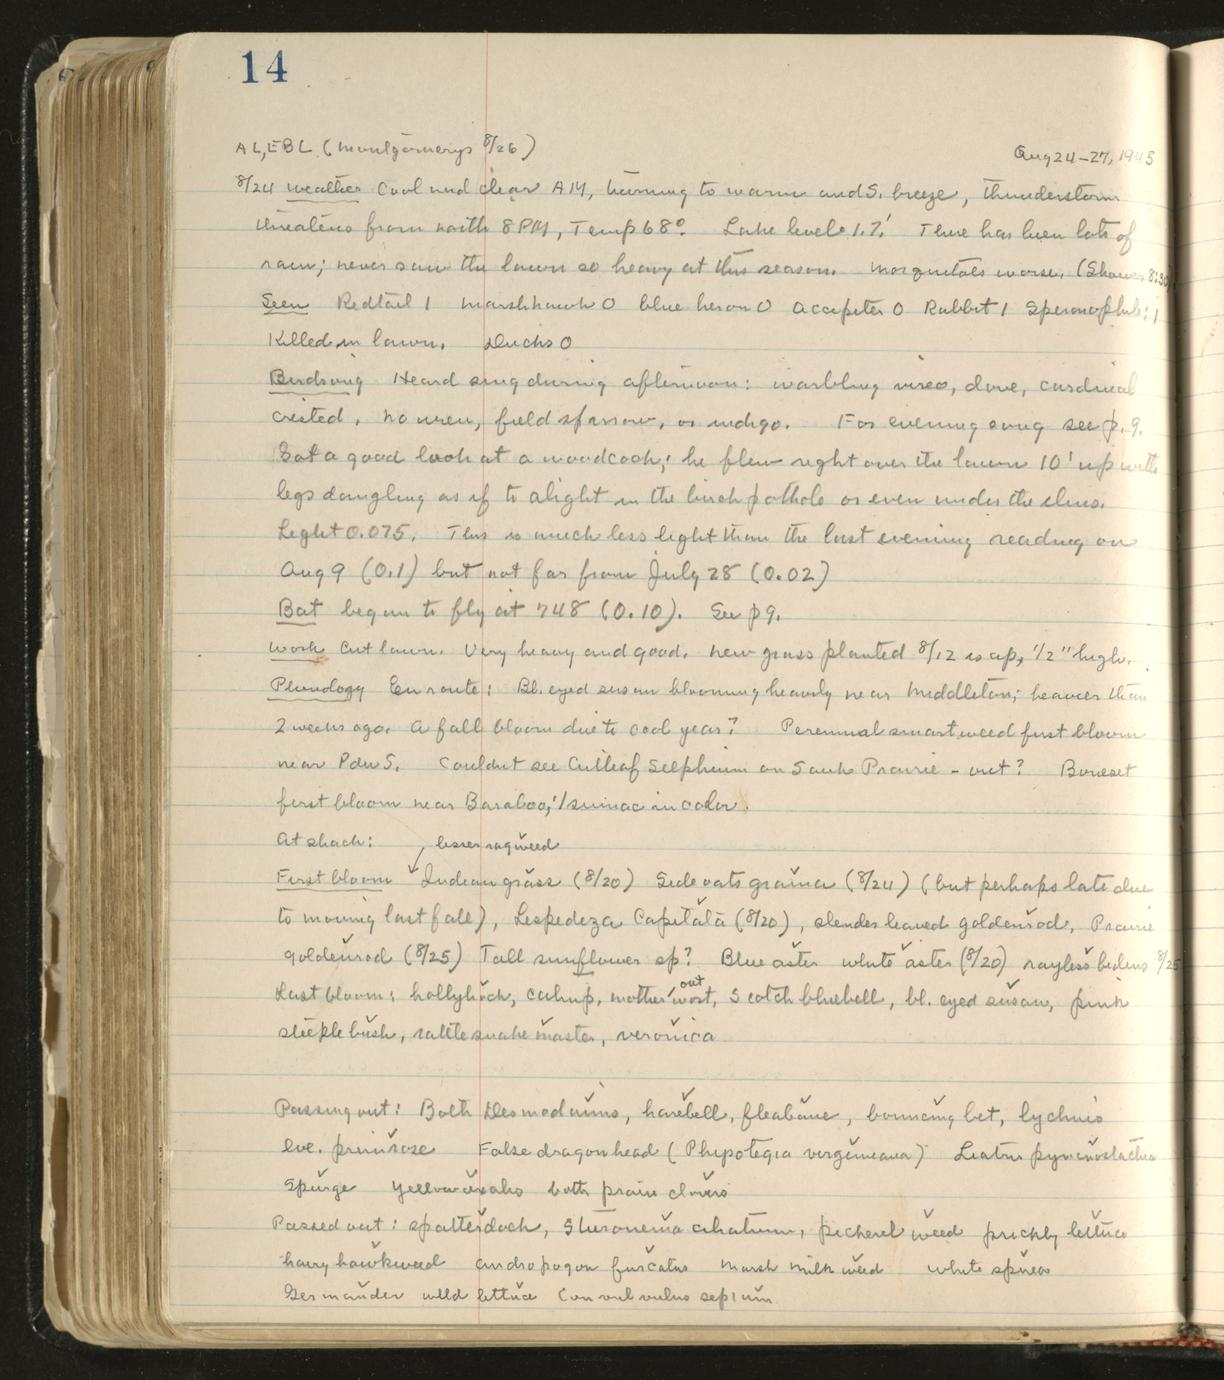 14
AL, EBL (Montgomerys 8/26) Aug 24-27, 1945
8/24 weather Cool and clear AM, turning to warm and S. breeze, thunderstorm
threatens from north 8 PM, Temp 68°. Lake level 1.7'. There has been lots of
rain; never saw the lawn so heavy at this season. Mosquitoes worse. (Shower 8:30
Seen Redtail 1 Marshhawk 0 blue heron 0 accipiter 0 Rabbit 1 Spermophile: 1
Killed in lawn. Ducks 0
Birdsong Heard sing during afternoon: warbling vireo, dove, cardinal
crested. No wren, field sparrow, or indigo. For evening song see p. 9.
Got a good look at a woodcock; he flew right over the lawn 10' up with
legs dangling as if to alight in the birch pothole or even under the elms.
Light 0.075. This is much less light than the last evening reading on
Aug 9 (0.1) but not far from July 28 (0.02)
Bat began to fly at 748 (0.10). See p 9.
Work Cut lawn. Very heavy and good. New grass planted 8/12 is up, 1/2" high.
Phenology En route: Bl. eyed susan blooming heavily near Middleton; heavier than
2 weeks ago. A fall bloom due to cool year? Perennial smartweed first bloom
near P du S. Couldnt see Cutleaf Silphium on Sauk Prairie - out? Boneset
first bloom near Baraboo; 1 sumac in color.
At shack: lesser ragweed
First bloom Indian grass (8/20) Side oats grama (8/24) (but perhaps late due
to mowing last fall), Lespedeza Capitata (8/20), slender leaved goldenrod, Prairie
goldenrod (8/25) Tall sunflower sp? Blue aster white aster (8/20) rayless bidens 8/25
Last bloom: hollyhock, catnip, motherwort, out Scotch bluebell, bl. eyed susan, pink
steeple bush, rattlesnake master, veronica
Passing out: Both Desmodiums, harebell, fleabane, bouncing bet, lychnis
Eve. primrose False dragonhead (Phipotegia virginiana) Liatris pycnostachia
Spurge yellow oxalis both prairie clovers
Passed out: spatterdock, Steironema ciliatum, pickerel weed prickly lettuce
hairy hawkweed andropogon furcatus marsh milk weed white spirea
Germander wild lettuce Convolvulus sepium